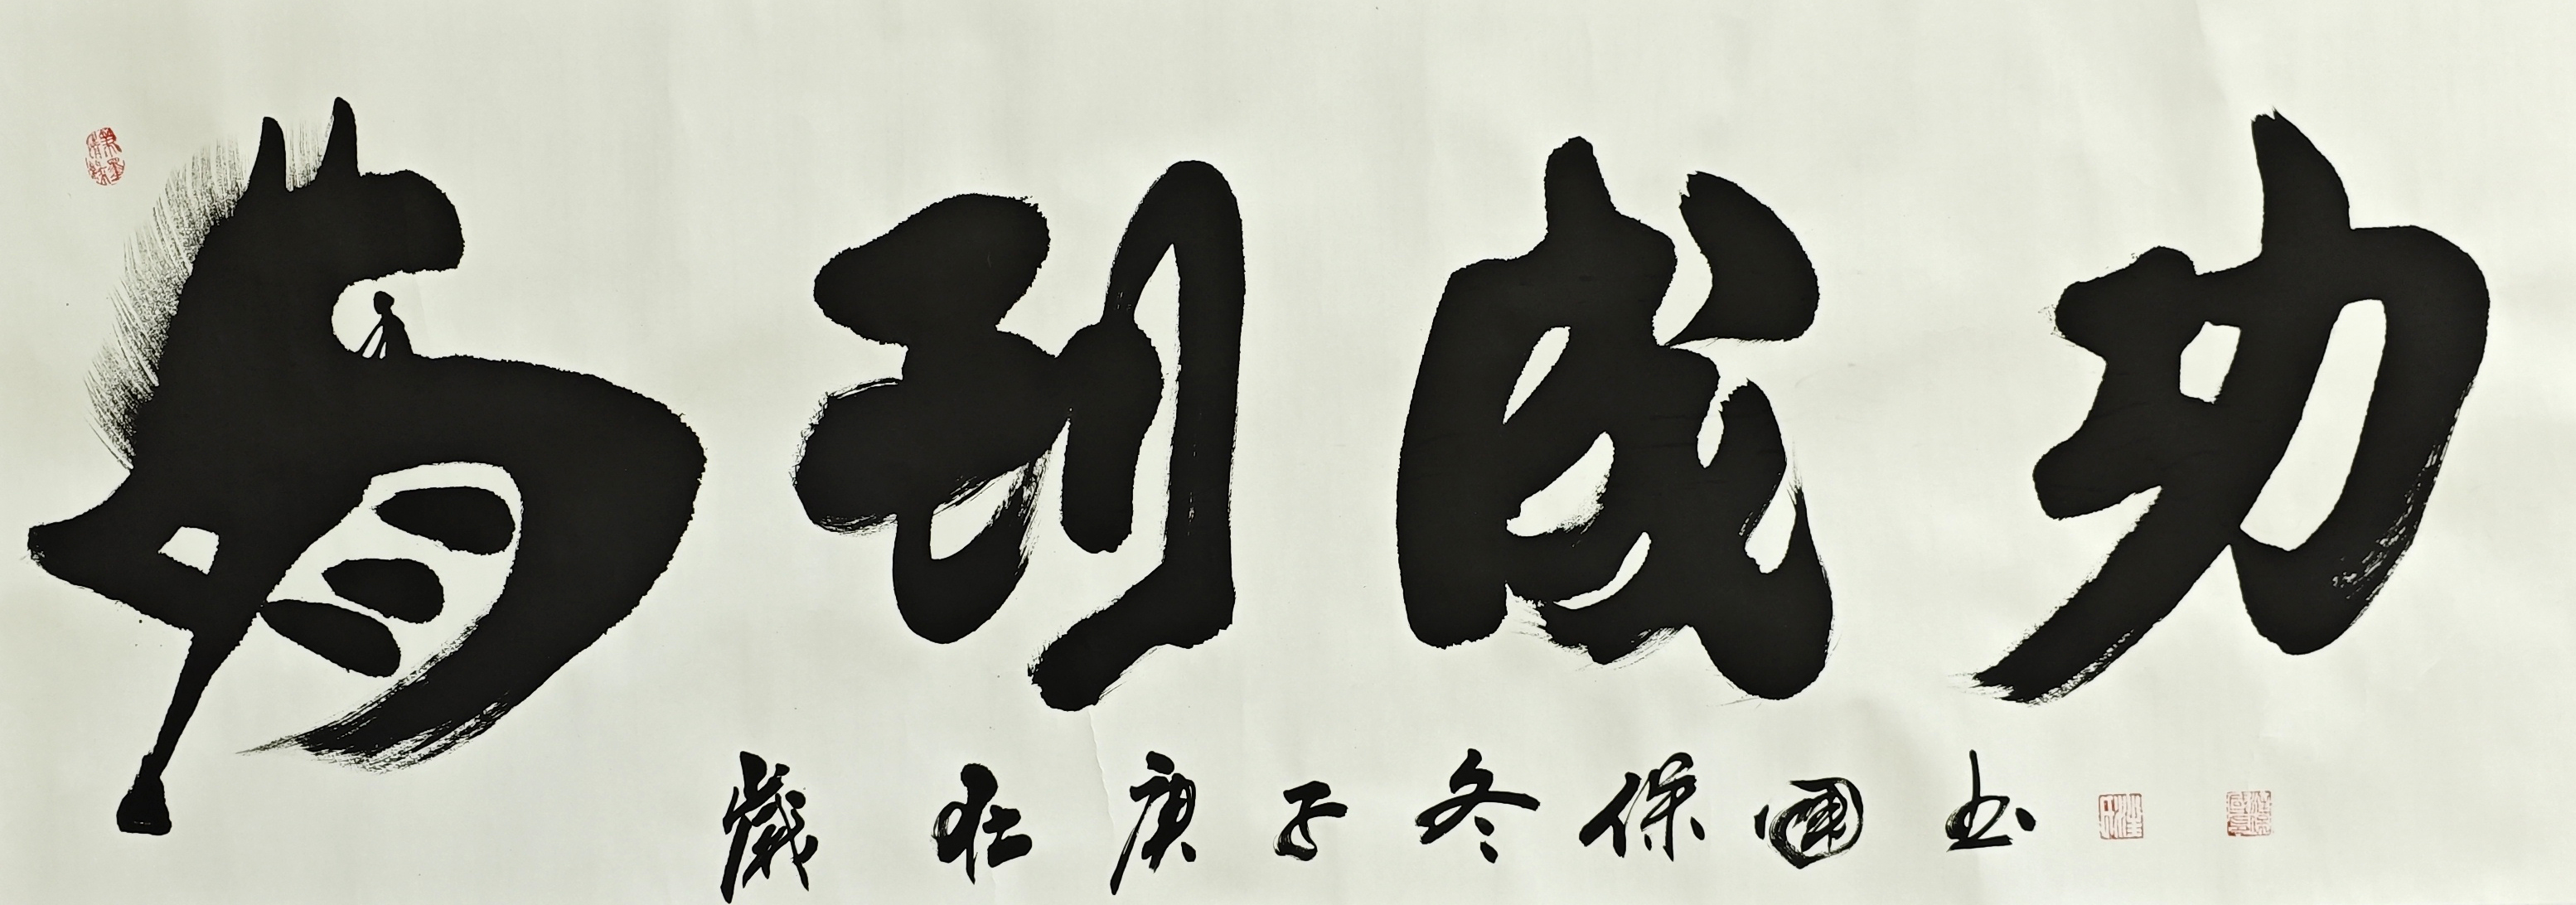 马到成功
歲在庚子冬保國书